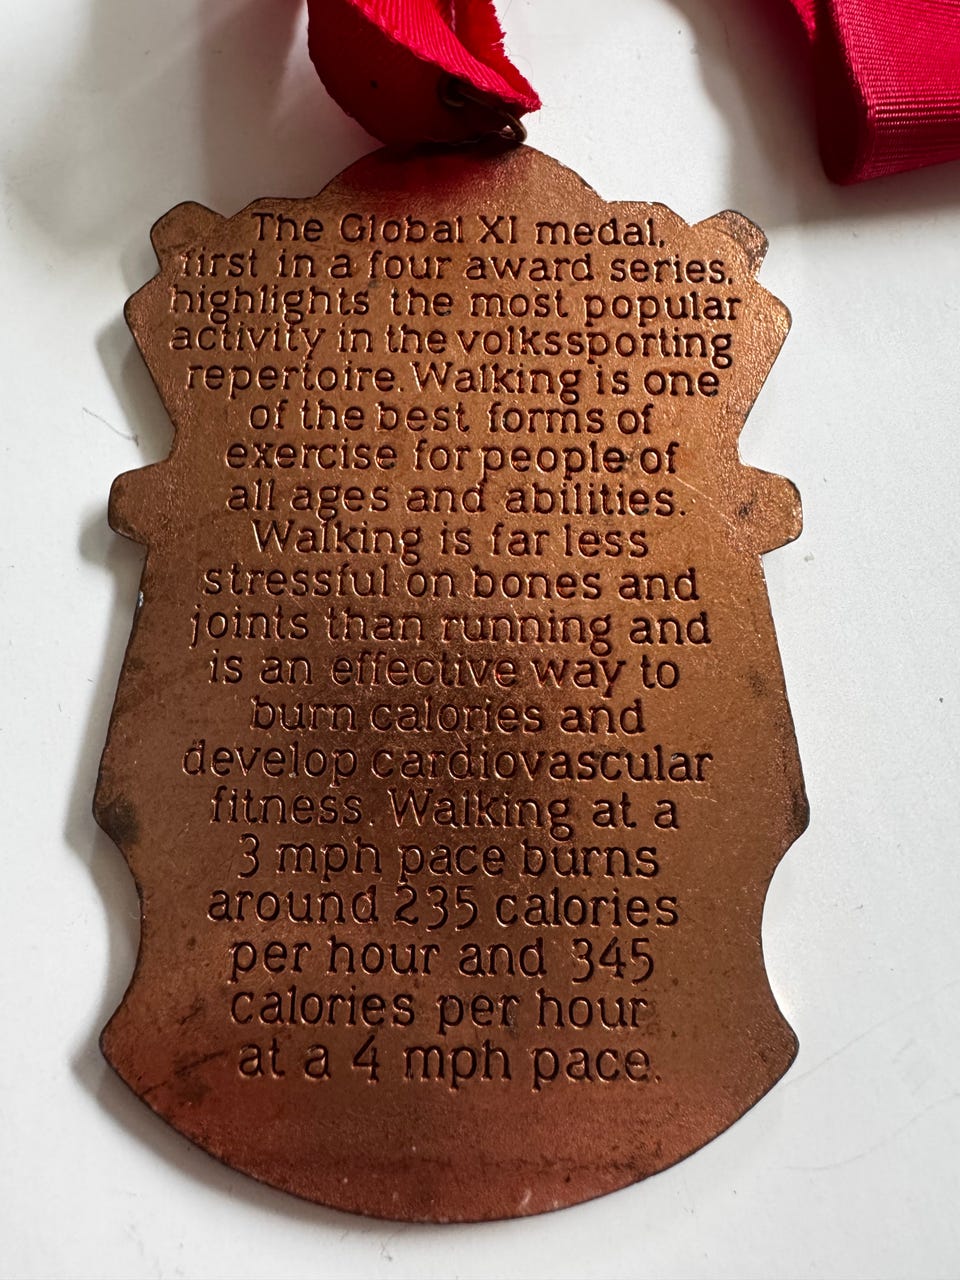 The Global XI medal,
first in a four award series,
highlights the most popular
activity in the volkssporting
repertoire. Walking is one
of the best forms of
exercise for people of
all ages and abilities.
Walking is far less
stressful on bones and
joints than running and
is an effective way to
burn calories and
develop cardiovascular
fitness. Walking at a
3 mph pace burns
around 235 calories
per hour and 345
calories per hour
at a 4 mph pace.